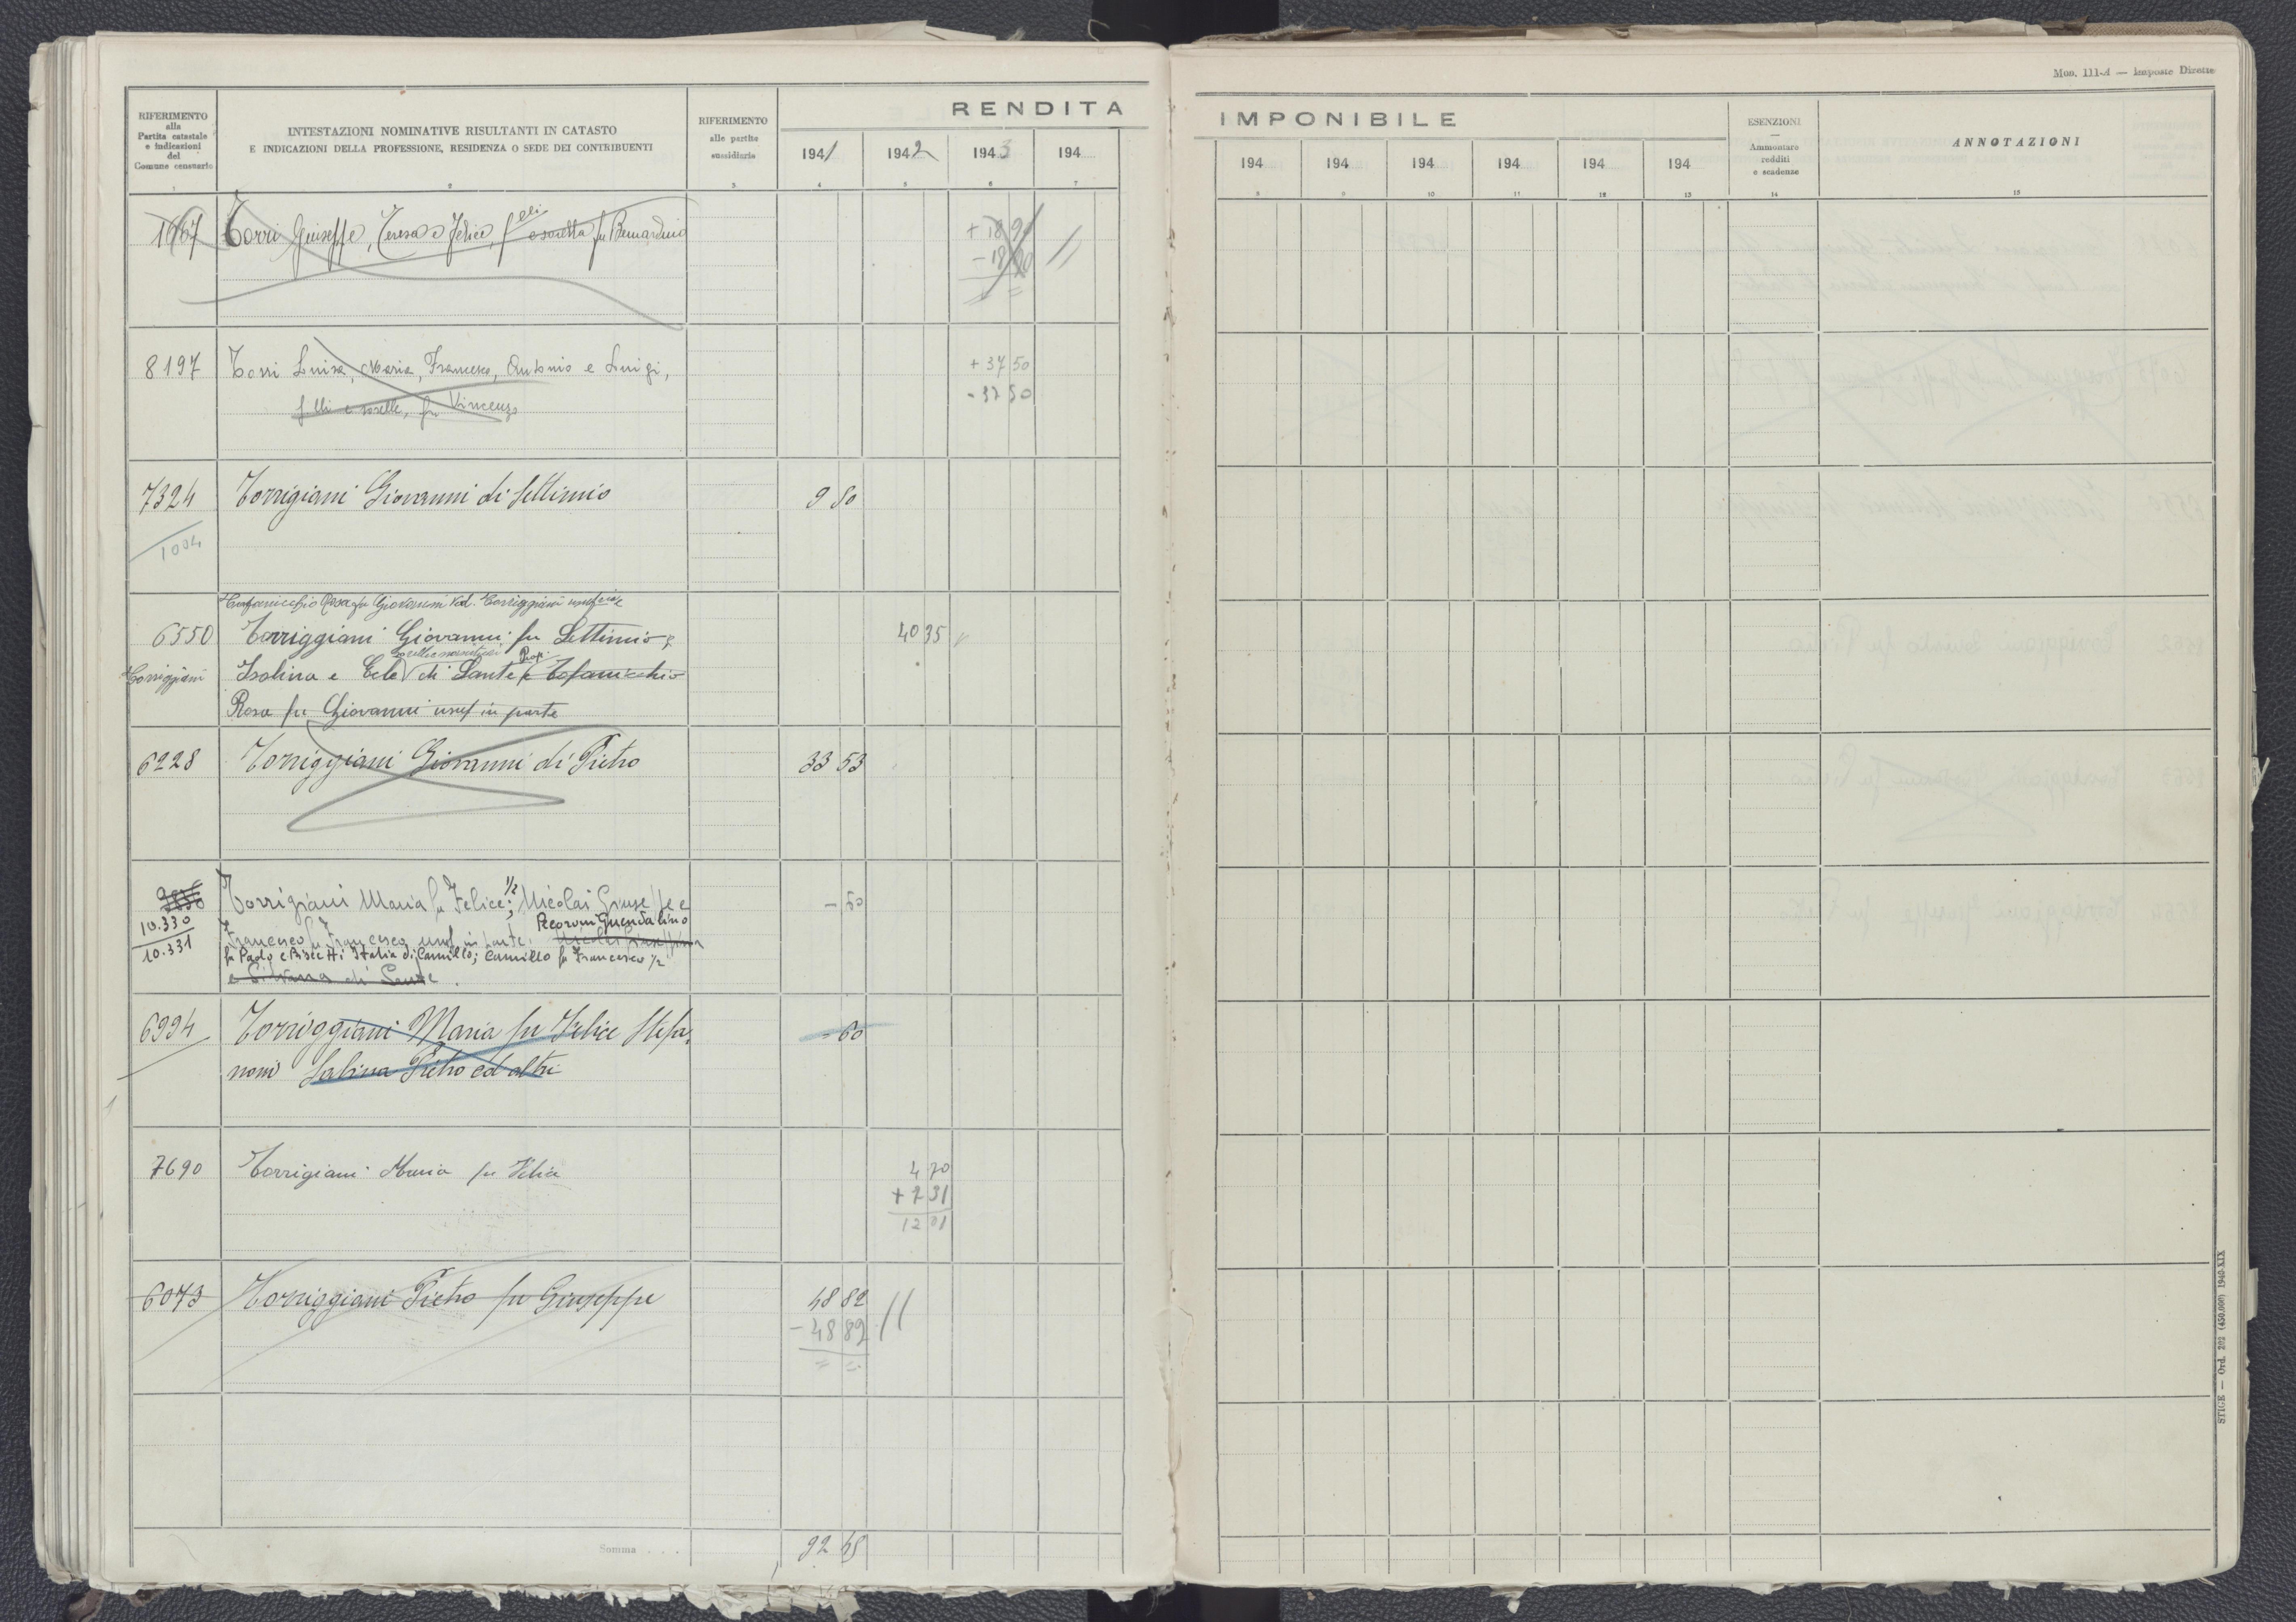 Mod. 111-A — Imposte Dirette
RIFERIMENTO
alla
Partita catastale
e indicazioni
del
Comune censuario
INTESTAZIONI NOMINATIVE RISULTANTI IN CATASTO
E INDICAZIONI DELLA PROFESSIONE, RESIDENZA O SEDE DEI CONTRIBUENTI
RIFERIMENTO
alle partite
sussidiarie
RENDITA
IMPONIBILE
1941
1942
1943
194
194
194
194
194
194
194
ESENZIONI
—
Ammontare
redditi
e scadenze
ANNOTAZIONI
1 2 3 4 5 6 7 8 9 10 11 12 13 14 15
1667 Torri Giuseppe, Teresa e Felice, f.lli e sorella fu Bernardino + 18 90
- 18 90
= =
8197 Torri Luisa, Maria, Francesco, Antonio e Luigi, + 37 50
f.lli e sorelle, fu Vincenzo - 37 50
7324 Torrigiani Giovanni di Settimio 9 50
1004
Rosa fu Giovanni Ved. Torriggiani
6550 Torriggiani Giovanni fu Settimio 40 35
Torriggiani Isolina e di Sante Prop. e Tofanicchio
Rosa fu Giovanni usuf in parte
6228 Torriggiani Giovanni di Pietro 33 53
10.330 Torrigiani Maria fu Felice 1/2; Nicolai Giuseppe e - 50
10.331 Francesco fu Francesco, usuf. in parte. Pecoroni Guendalino
fu Paolo e Bisetti Italia di Camillo; Camillo fu Francesco 1/2
e Silvana di Sante.
6994 Torriggiani Maria fu Felice Stefa- - 60
noni Sabina Pietro ed altri
7690 Torrigiani Maria fu Felice 4 70
+ 7 31
12 01
6073 Torriggiani Pietro fu Giuseppe 48 82
- 48 82
= =
Somma . . . .
STIGE — Ord. 202 (450.000) 1940-XIX